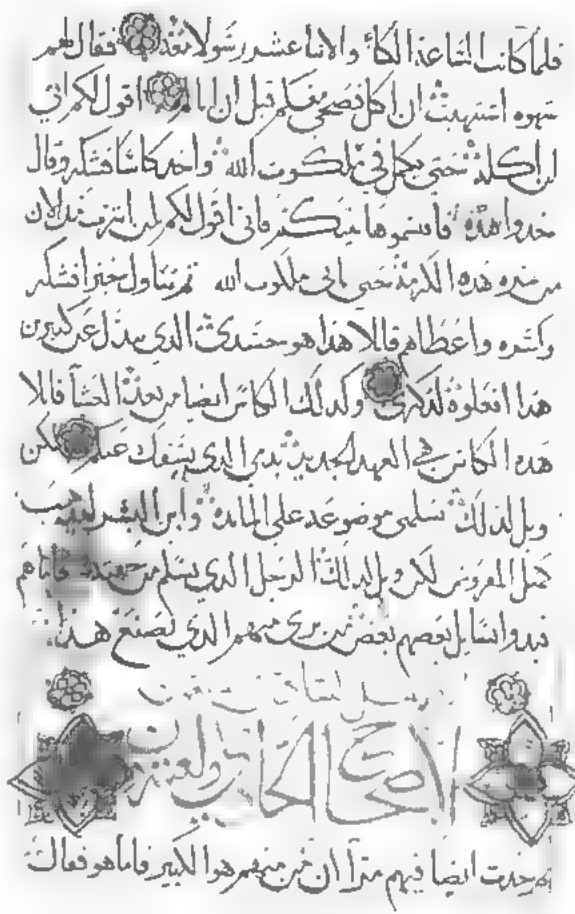 فلما كانت الساعة اتكأ والاثنا عشر رسولا معه فقال لهم
شهوه اشتهيت ان اكل فصحى معكم قبل ان اقول لكم انى
لن اكله حتى يكمل فى ملكوت الله واخد كاسا فشكر وقال
خدوا هذه فاقسموها بينكم فانى اقول لكم لن اشرب مند الان
من هده الكرمة حتى ياتى ملكوت الله ثم تناول خبزا فشكر
وكسره واعطاهم قائلا هذا هو جسدى الدى يبدل عن كثيرين
هدا افعلوه لدكرى وكدلك الكاس ايضا من بعد العشا قائلا
هده الكاس هى العهد الجديد بدمى الدى يسفك عنكم لكن
ويل لدلك يسلمنى موضوعه على المائدة وابن البشر يذهب
كمثل المفروض لكن ويل لدلك الرجل الدى يسلم من فاما هم
فبدوا يسايل بعضهم بعض من يرى منهم الدى يصنع هدا
الاصحاح الحادى والعشرون
ثم حدث ايضا فيهم مرآ ان من منهم هو الكبير فاما هو فقال